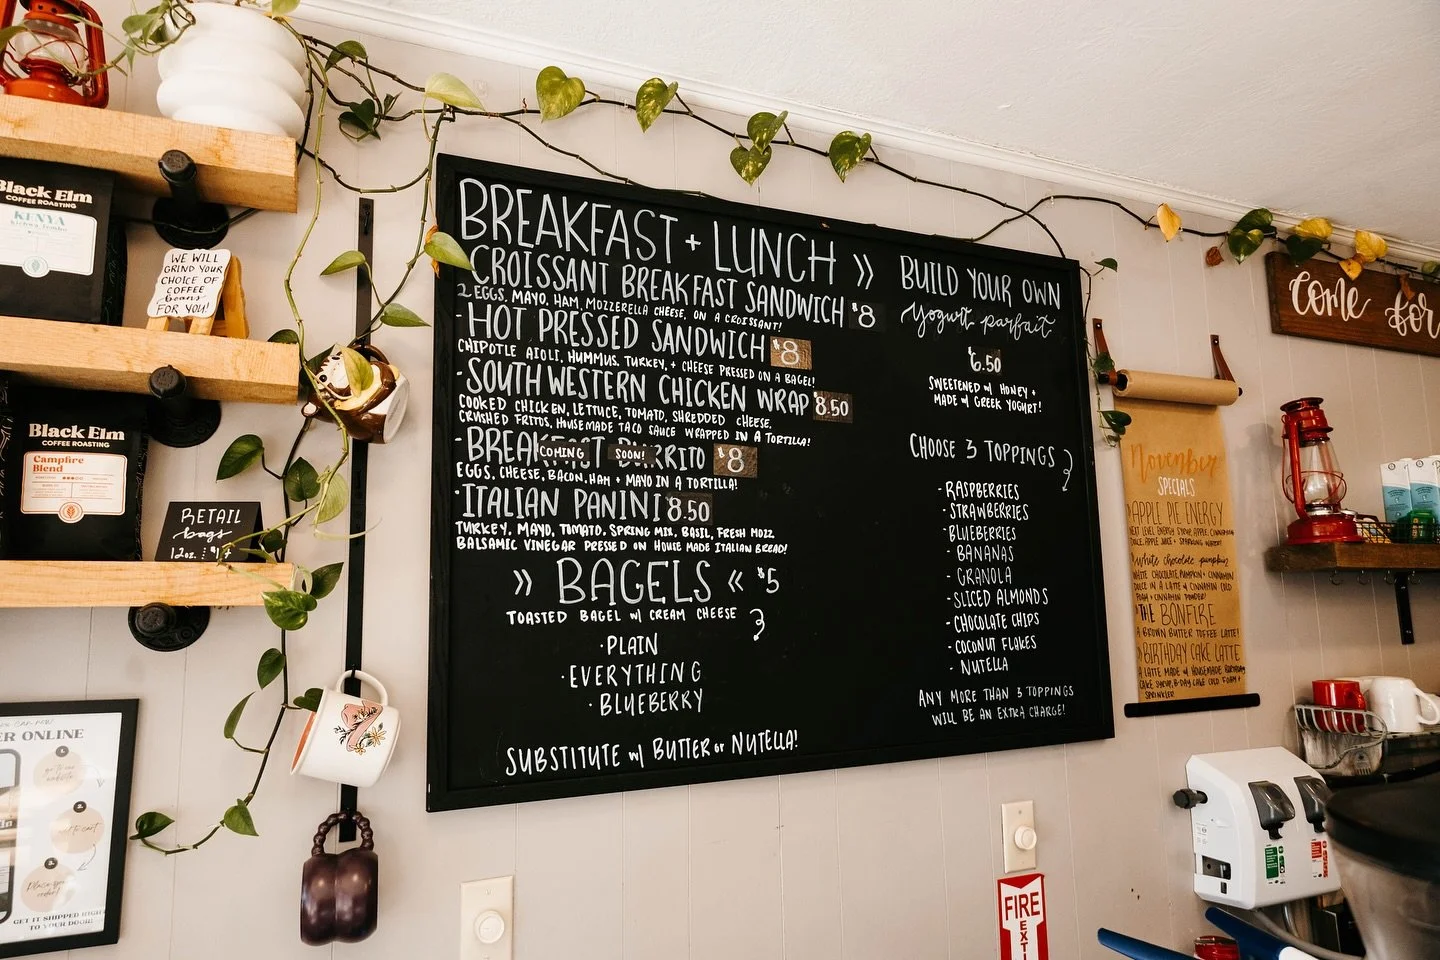 Black Elm
COFFEE ROASTING
KENYA
WE WILL
GRIND YOUR
CHOICE OF
COFFEE
beans
FOR YOU!
Black Elm
COFFEE ROASTING
Campfire
Blend
RETAIL
bags
12oz.
ER ONLINE
go to our
website
Place your
order!
GET IT SHIPPED RIGHT
TO YOUR DOOR!
BREAKFAST + LUNCH »
CROISSANT BREAKFAST SANDWICH $8
2 EGGS, MAYO, HAM, MOZZERELLA CHEESE, ON A CROISSANT!
- HOT PRESSED SANDWICH $8
CHIPOTLE AIOLI, HUMMUS, TURKEY, + CHEESE PRESSED ON A BAGEL!
- SOUTHWESTERN CHICKEN WRAP $8.50
COOKED CHICKEN, LETTUCE, TOMATO, SHREDDED CHEESE,
CRUSHED FRITOS, HOUSEMADE TACO SAUCE WRAPPED IN A TORTILLA!
- BREAKFAST BURRITO $8
COMING SOON!
EGGS, CHEESE, BACON, HAM + MAYO IN A TORTILLA!
· ITALIAN PANINI 8.50
TURKEY, MAYO, TOMATO, SPRING MIX, BASIL, FRESH MOZZ
BALSAMIC VINEGAR PRESSED ON HOUSE MADE ITALIAN BREAD!
» BAGELS « $5
TOASTED BAGEL w/ CREAM CHEESE
· PLAIN
· EVERYTHING
· BLUEBERRY
SUBSTITUTE w/ BUTTER or NUTELLA!
BUILD YOUR OWN
yogurt parfait
$6.50
SWEETENED w/ HONEY +
MADE w/ GREEK YOGURT!
CHOOSE 3 TOPPINGS
- RASPBERRIES
- STRAWBERRIES
- BLUEBERRIES
- BANANAS
- GRANOLA
- SLICED ALMONDS
- CHOCOLATE CHIPS
- COCONUT FLAKES
- NUTELLA
ANY MORE THAN 3 TOPPINGS
WILL BE AN EXTRA CHARGE!
November
SPECIALS
APPLE PIE ENERGY
NEXT LEVEL ENERGY SYRUP, APPLE, CINNAMON
DOLCE, APPLE JUICE + SPARKLING WATER!
White chocolate pumpkin
WHITE CHOCOLATE, PUMPKIN + CINNAMON
DOLCE IN A LATTE w/ CINNAMON COLD
FOAM + CINNAMON POWDER!
THE BONFIRE
A BROWN BUTTER TOFFEE LATTE!
BIRTHDAY CAKE LATTE
A LATTE MADE w/ HOUSEMADE BIRTHDAY
CAKE SYRUP, B-DAY CAKE COLD FOAM +
SPRINKLES!
Come for
FIRE
EXTI